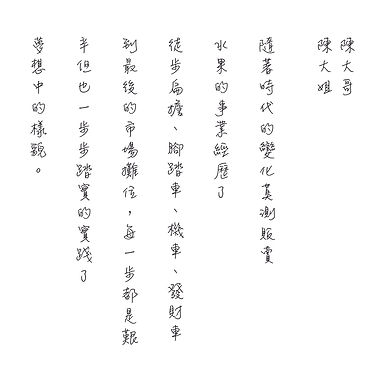 陳大哥
陳大姐
隨著時代的變化莫測販賣
水果的事業經歷了
徒步扁擔、腳踏車、機車、發財車
到最後的市場攤位，每一步都是艱
辛但也一步步踏實的實踐了
夢想中的樣貌。